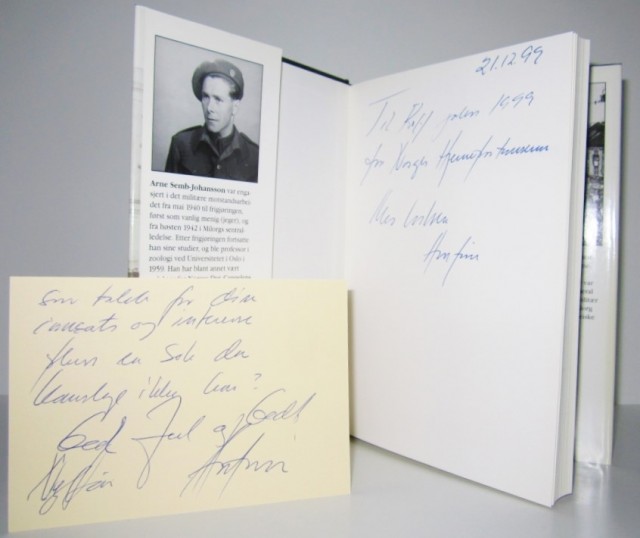 Arne Semb-Johansson var enga
sjert i det militære motstandsarbei
det fra mai 1940 til frigjøringen,
først som vanlig menig (jeger), og
fra høsten 1942 i Milorgs sentral
ledelse. Etter frigjøringen fortsatte
han sine studier, og ble professor i
zoologi ved Universitetet i Oslo i
1959. Han har blant annet vært
21.12.99
Til Rolf julen 1999
fra Norges Hjemmefrontmuseum
Arnfinn
som takk for din
innsats og interesse
en bok du
kanskje ikke har?
God Jul og Godt
Nyttår Arnfinn